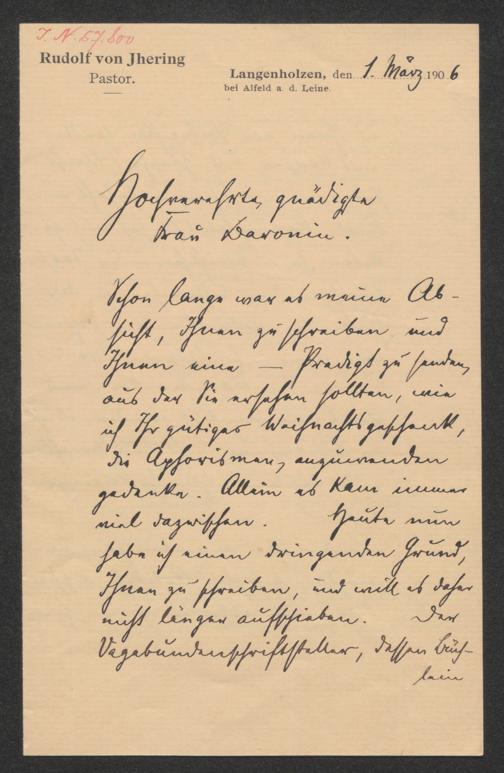 J. N. 57.800
Rudolf von Jhering
Pastor.
Langenholzen, den 1. März 1906
bei Alfeld a. d. Leine.
Hochverehrte, gnädigste
Frau Baronin.
Schon lange war es meine Ab-
sicht, Ihnen zu schreiben und
Ihnen eine — Predigt zu senden,
aus der Sie ersehen sollten, wie
ich Ihr gütiges Weihnachtsgeschenk,
die Aphorismen, anzuwenden
gedenke. Allein es kam immer
viel dazwischen. Heute nun
habe ich einen dringenden Grund,
Ihnen zu schreiben, und will es daher
nicht länger aufschieben. Der
Vagabundenschriftsteller, dessen Büch-
lein